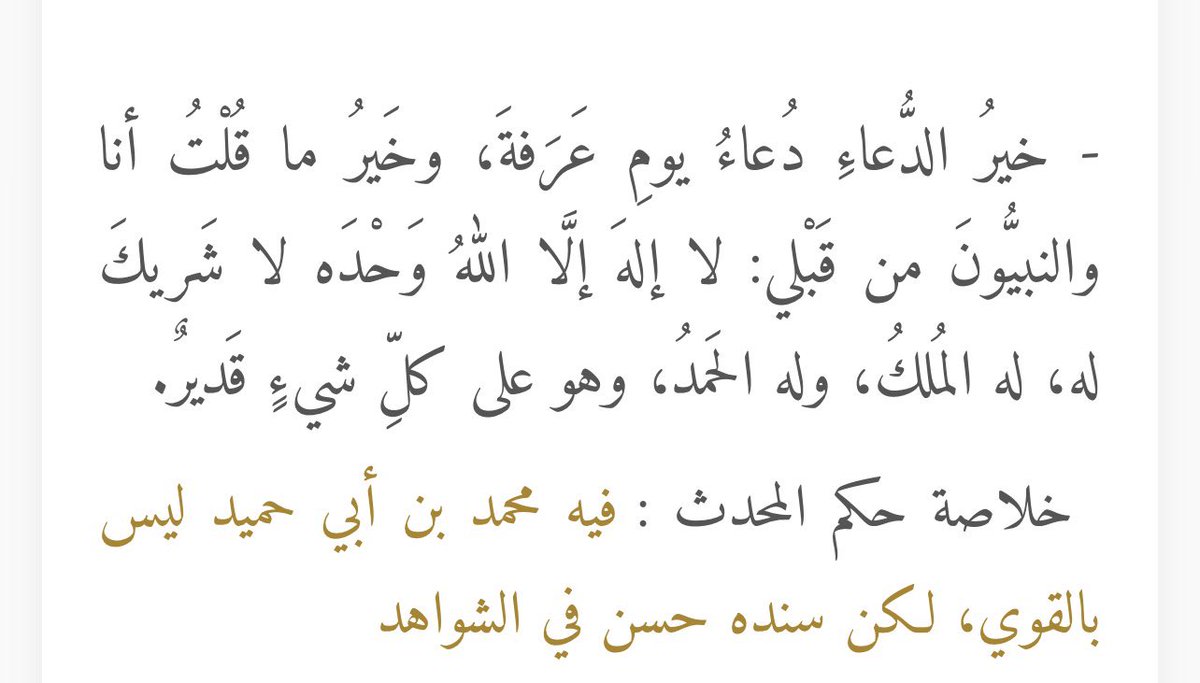 - خيرُ الدُّعاءِ دُعاءُ يومِ عَرَفةَ، وخَيرُ ما قُلْتُ أنا
والنبيُّونَ من قَبْلي: لا إلهَ إلَّا اللهُ وَحْدَه لا شَريكَ
له، له المُلكُ، وله الحَمدُ، وهو على كلِّ شيءٍ قَديرٌ.
خلاصة حكم المحدث : فيه محمد بن أبي حميد ليس
بالقوي، لكن سنده حسن في الشواهد